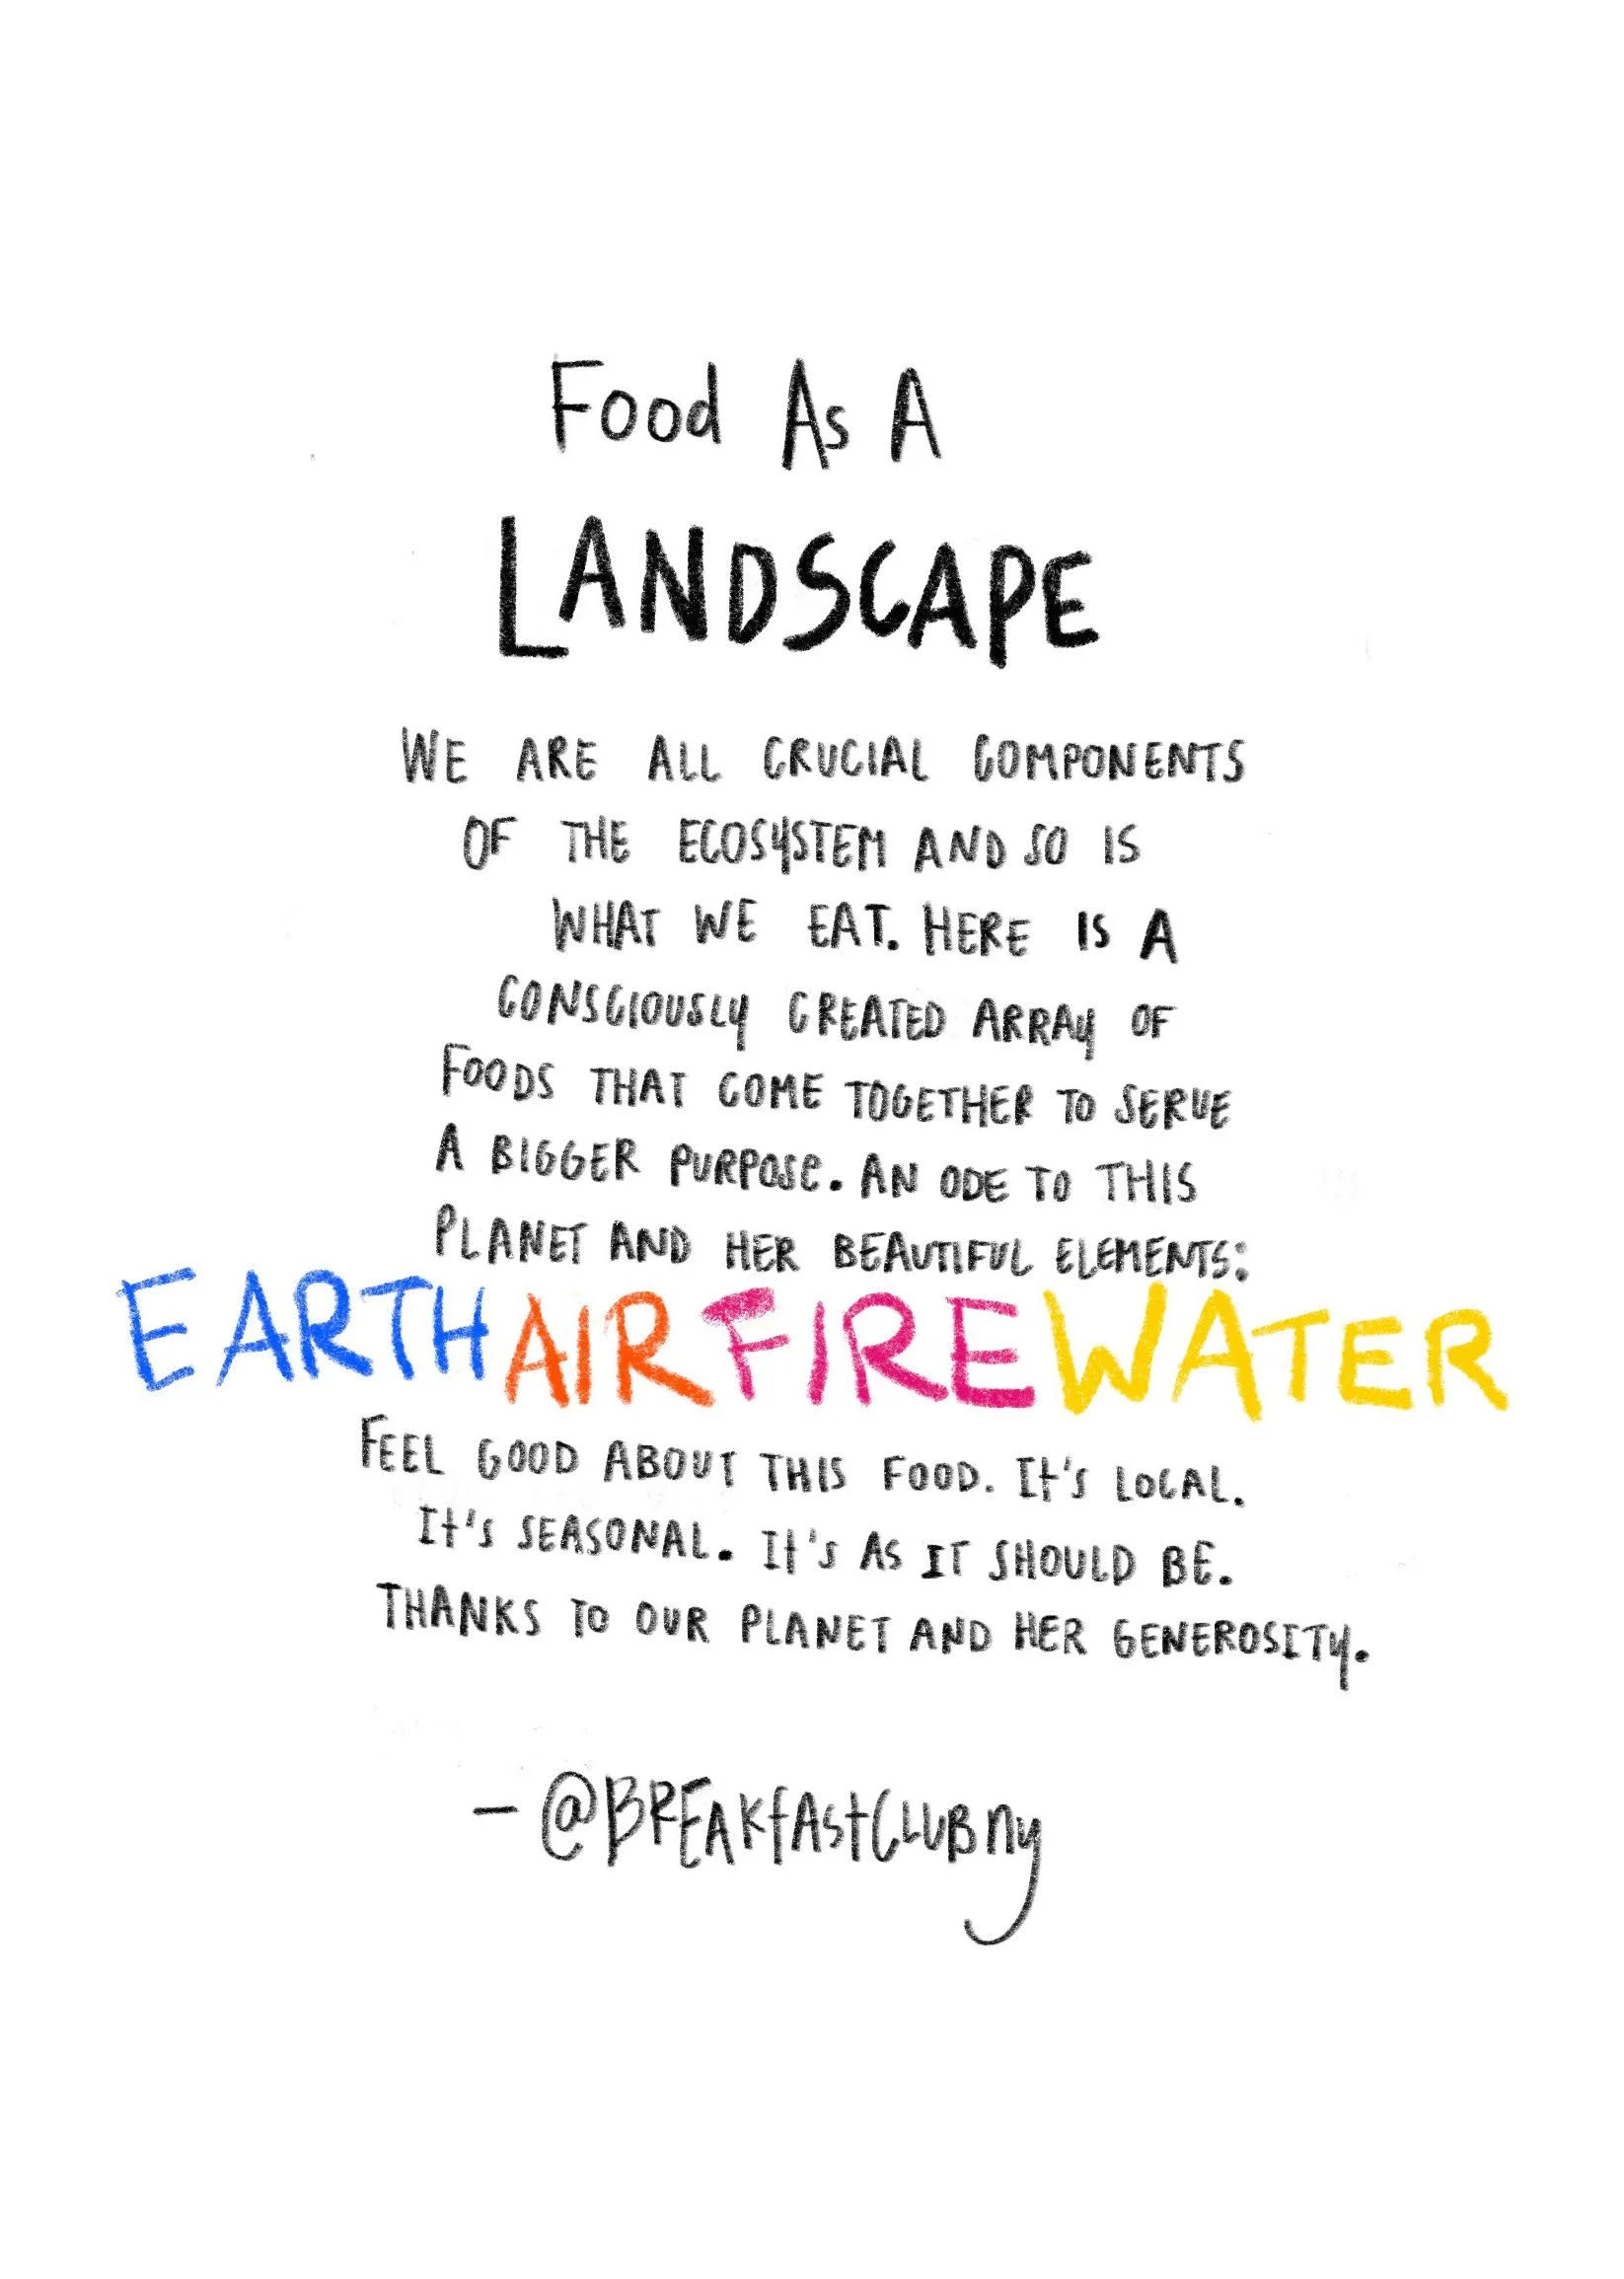 Food As A
LANDSCAPE
WE ARE ALL CRUCIAL COMPONENTS
OF THE ECOSYSTEM AND SO IS
WHAT WE EAT. HERE IS A
CONSCIOUSLY CREATED ARRAY OF
FOODS THAT COME TOGETHER TO SERVE
A BIGGER PURPOSE. AN ODE TO THIS
PLANET AND HER BEAUTIFUL ELEMENTS:
EARTH AIR FIRE WATER
FEEL GOOD ABOUT THIS FOOD. It's LOCAL.
It's SEASONAL. It's AS IT SHOULD BE.
THANKS TO OUR PLANET AND HER GENEROSITY.
— @BREAKfAStCLUBny